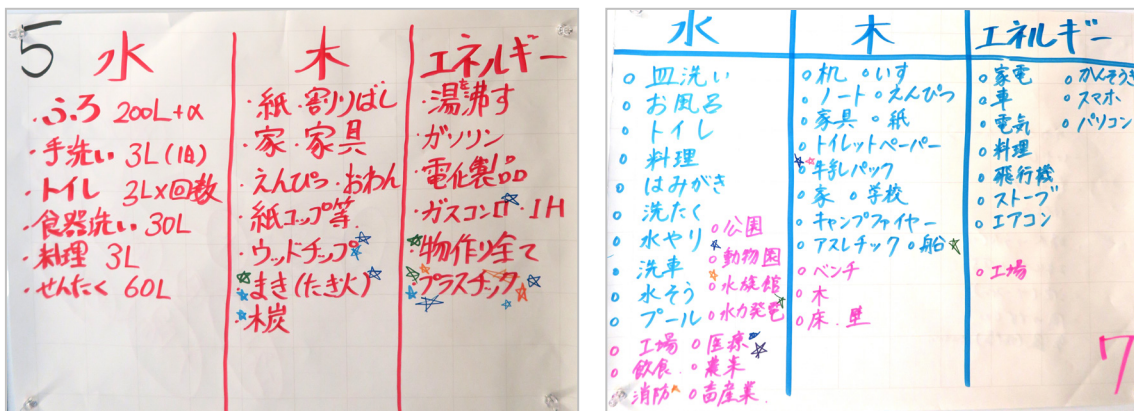 5
水
・ふろ 200L+α
・手洗い 3L(1回)
・トイレ 3L×回数
・食器洗い 30L
・料理 3L
・せんたく 60L
木
・紙・割りばし
・家・家具
・えんぴつ・おわん
・紙コップ等
・ウッドチップ
・まき(たき火)
・木炭
エネルギー
・湯沸す
・ガソリン
・電化製品
・ガスコンロ・IH
・物作り全て
・プラスチック
水
○皿洗い
○お風呂
○トイレ
○料理
○はみがき
○洗たく
○水やり
○洗車
○水そう
○プール
○公園
○動物園
○水族館
○水力発電
○工場 ○医療
○飲食 ○農業
○消防 ○畜産業
木
○机 ○いす
○ノート ○えんぴつ
○家具 ○紙
○トイレットペーパー
○牛乳パック
○家 ○学校
○キャンプファイヤー
○アスレチック ○船
○ベンチ
○木
○床、壁
エネルギー
○家電 ○かんそうき
○車 ○スマホ
○電気 ○パソコン
○料理
○飛行機
○ストーブ
○エアコン
○工場
7